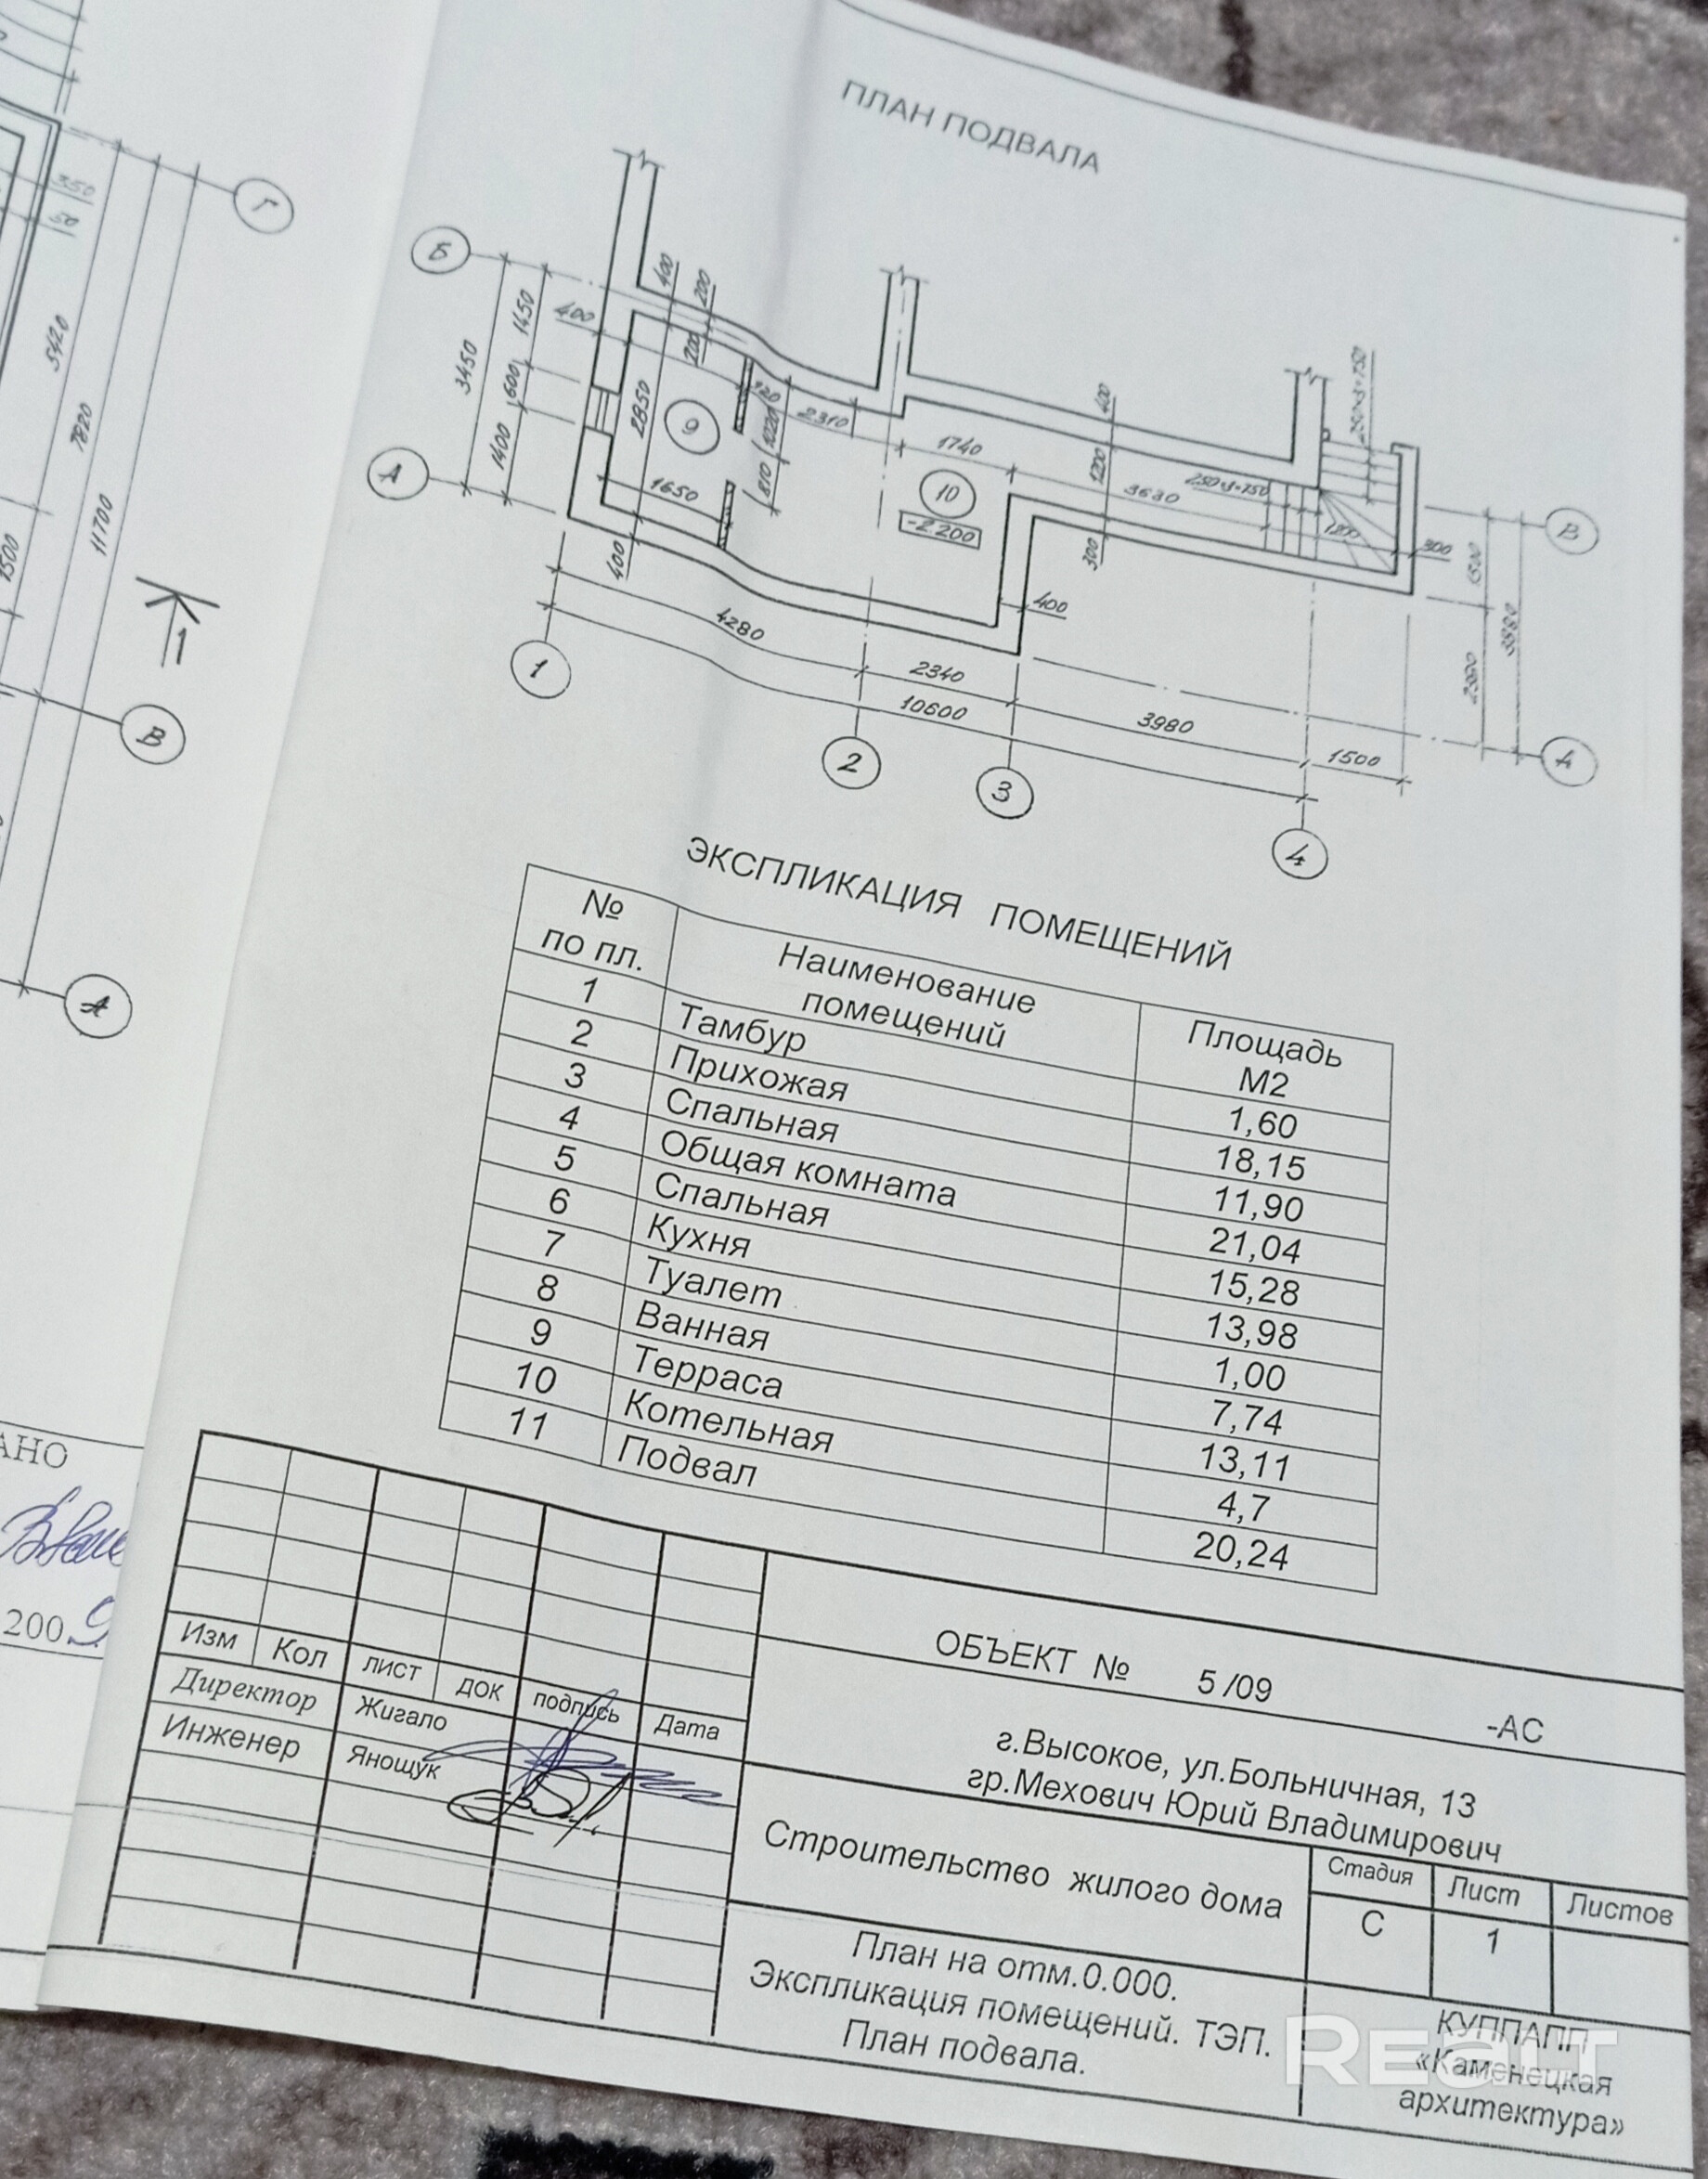 ПЛАН ПОДВАЛА
Б
А
3450
1450
600
1400
400
400
200
200
2850
9
1650
120
1020
810
2310
400
1740
10
-2.200
400
1200
300
3630
250×3=750
250×3=750
1200
300
400
В
А
2340
4280
10600
3980
1500
1
2
3
4
350
50
5420
7820
11700
1500
Г
В
А
1
ЭКСПЛИКАЦИЯ ПОМЕЩЕНИЙ
№ по пл. Наименование помещений Площадь М2
1 Тамбур 1,60
2 Прихожая 18,15
3 Спальная 11,90
4 Общая комната 21,04
5 Спальная 15,28
6 Кухня 13,98
7 Туалет 1,00
8 Ванная 7,74
9 Терраса 13,11
10 Котельная 4,7
11 Подвал 20,24
АНО
200
Изм Кол лист док подпись Дата
Директор Жигало
Инженер Янощук
ОБЪЕКТ № 5 /09 -АС
г.Высокое, ул.Больничная, 13
гр.Мехович Юрий Владимирович
Строительство жилого дома
Стадия Лист Листов
С 1
План на отм.0.000.
Экспликация помещений. ТЭП.
План подвала.
КУППАПП
«Каменецкая
архитектура»
Realt